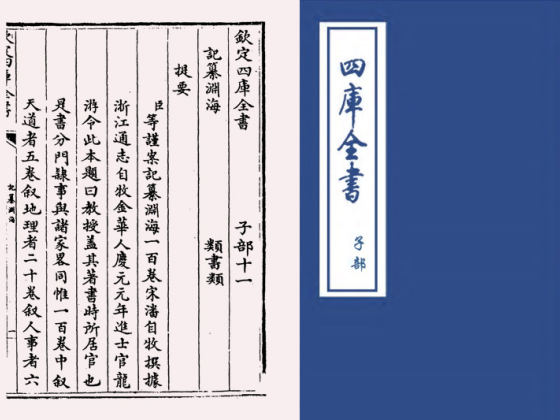 欽定四庫全書 子部十一
記纂淵海 類書類
提要
臣等謹案記纂淵海一百卷宋潘自牧撰據
浙江通志自牧金華人慶元元年進士官龍
游令此本題曰教授蓋其著書時所居官也
是書分門隸事與諸家畧同惟一百卷中叙
天道者五卷叙地理者二十卷叙人事者六
欽定四庫全書
記纂淵海
一
四庫全書
子部